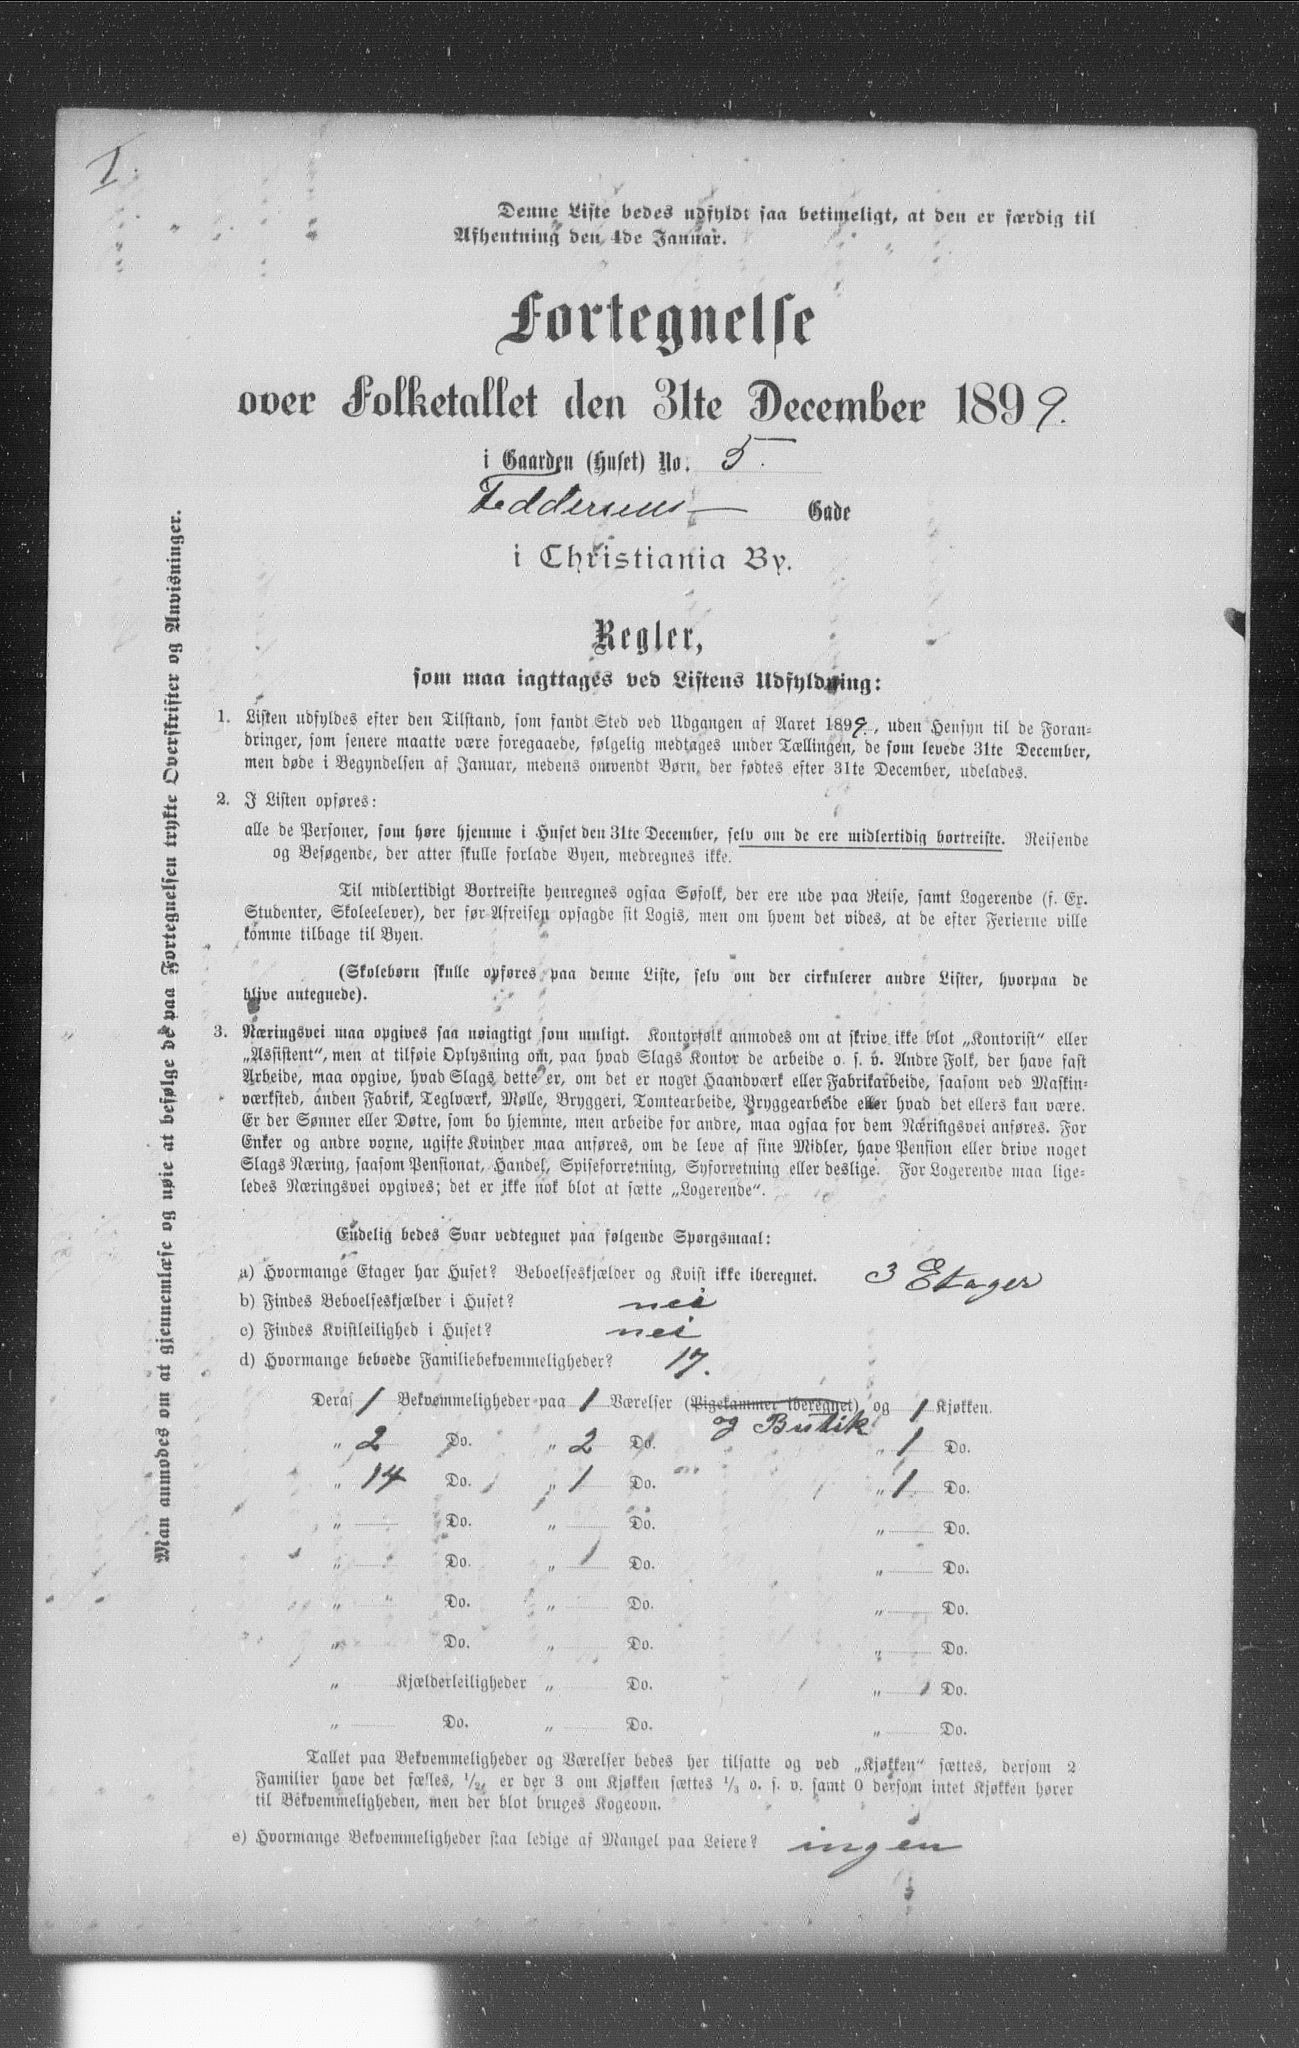 I.
Denne Liste bedes udfyldt saa betimeligt, at den er færdig til
Afhentning den 4de Januar.
Fortegnelse
over Folketallet den 31te December 1899.
i Gaarden (Huset) No. 5.
Feddersens Gade
i Christiania By.
Regler,
som maa iagttages ved Listens Udfyldning:
1. Listen udfyldes efter den Tilstand, som fandt Sted ved Udgangen af Aaret 1899, uden Hensyn til de Foran-
dringer, som senere maatte være foregaaede, følgelig medtages under Tællingen, de som levede 31te December,
men døde i Begyndelsen af Januar, medens omvendt Børn, der fødtes efter 31te December, udelades.
2. I Listen opføres:
alle de Personer, som høre hjemme i Huset den 31te December, selv om de ere midlertidig bortreiste. Reisende
og Besøgende, der atter skulle forlade Byen, medregnes ikke.
Til midlertidigt Bortreiste henregnes ogsaa Søfolk, der ere ude paa Reise, samt Logerende (f. Ex.
Studenter, Skoleelever), der før Afreisen opsagde sit Logis, men om hvem det vides, at de efter Ferierne ville
komme tilbage til Byen.
(Skolebørn skulle opføres paa denne Liste, selv om der cirkulerer andre Lister, hvorpaa de
blive antegnede).
3. Næringsvei maa opgives saa nøiagtigt som muligt. Kontorfolk anmodes om at skrive ikke blot „Kontorist“ eller
„Assistent“, men at tilføie Oplysning om, paa hvad Slags Kontor de arbeide o. s. v. Andre Folk, der have fast
Arbeide, maa opgive, hvad Slags dette er, om det er noget Haandværk eller Fabrikarbeide, saasom ved Maskin-
værksted, anden Fabrik, Teglværk, Mølle, Bryggeri, Tomtearbeide, Bryggearbeide eller hvad det ellers kan være.
Er der Sønner eller Døtre, som bo hjemme, men arbeide for andre, maa ogsaa for dem Næringsvei anføres. For
Enker og andre voxne, ugifte Kvinder maa anføres, om de leve af sine Midler, have Pension eller drive noget
Slags Næring, saasom Pensionat, Handel, Spiseforretning, Syforretning eller deslige. For Logerende maa lige-
ledes Næringsvei opgives; det er ikke nok blot at sætte „Logerende“.
Endelig bedes Svar vedtegnet paa følgende Spørgsmaal:
a) Hvormange Etager har Huset? Beboelseskjælder og Kvist ikke iberegnet. 3 Etager
b) Findes Beboelseskjælder i Huset? nei
c) Findes Kvistleilighed i Huset? nei
d) Hvormange beboede Familiebekvemmeligheder? 17.
Deraf 1 Bekvemmeligheder paa 1 Værelser (Pigekammer iberegnet) og 1 Kjøkken.
og Butik
„ 2 Do. „ 2 Do. „ 1 Do.
„ 14 Do. „ 1 Do. „ 1 Do.
„ Do. „ Do. „ Do.
„ Do. „ Do. „ Do.
„ Do. „ Do. „ Do.
„ Do. „ Do. „ Do.
„ Kjælderleiligheder „ Do. „ Do.
„ Do. „ Do. „ Do.
Tallet paa Bekvemmeligheder og Værelser bedes her tilsatte og ved „Kjøkken“ sættes, dersom 2
Familier have det fælles, 1/2, er der 3 om Kjøkken sættes 1/3 o. s. v. samt 0 dersom intet Kjøkken hører
til Bekvemmeligheden, men der blot bruges Kogeovn.
e) Hvormange Bekvemmeligheder staa ledige af Mangel paa Leiere? ingen
Man anmodes om at gjennemlæse og nøie at befølge de paa Fortegnelsen trykte Overskrifter og Anvisninger.